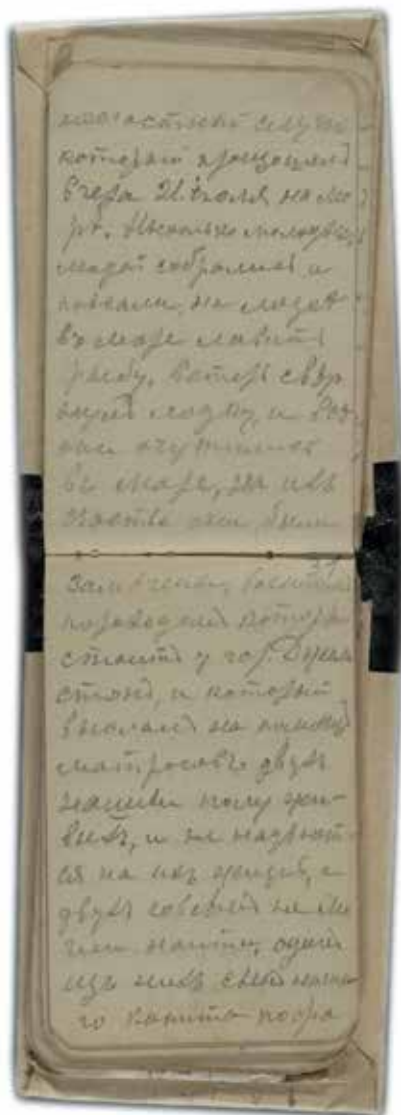 который произошелъ
вчера 21 іюля на мо
рѣ. Нѣсколько молодыхъ
людей собрались и
поехали на лодке
въ море ловить
рыбу, ветеръ
лодку, и
они очутились
въ море, на ихъ
счастье они были
замечены военнымъ
пароходомъ которы
стоитъ у гор.
и который
выслалъ на помощь
матросовъ двухъ
нашли полу жи-
выхъ, и не надѣют-
ся на ихъ жизнь, а
двухъ совсемъ не мо
гли найти, одинъ
изъ нихъ сынъ
го капита